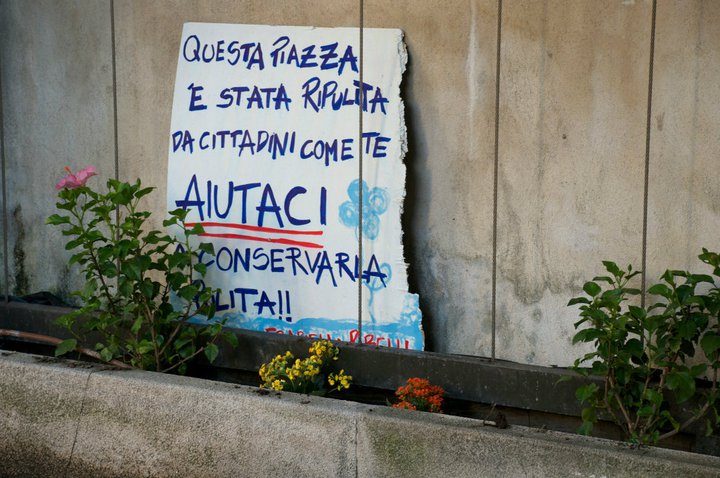 QUESTA PIAZZA
'E STATA RIPULITA
DA CITTADINI COME TE
AIUTACI
A CONSERVARLA
PULITA!!